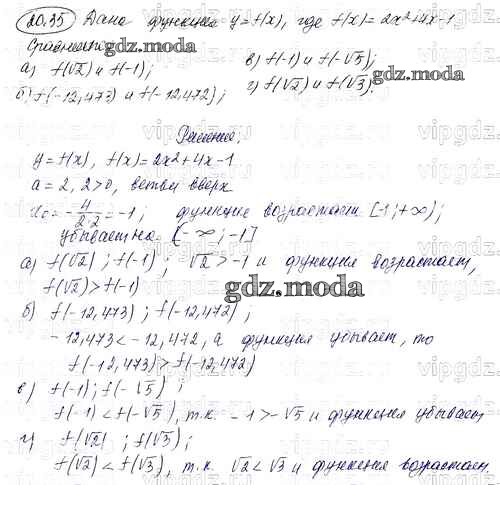 20.35 Дана функция y=f(x), где f(x)=2x²+4x-1
Сравните:
gdz.moda
а) f(√2) и f(-1);
в) f(-1) и f(-√5);
б) f(-12,473) и f(-12,472);
г) f(√2) и f(√3).
Решение:
y=f(x), f(x)=2x²+4x-1
a=2, 2>0, ветви вверх
x₀=-4/2·2=-1; функция возрастает [-1;+∞);
убывает на (-∞;-1]
а) f(√2); f(-1); √2>-1 и функция возрастает,
f(√2)>f(-1)
gdz.moda
б) f(-12,473); f(-12,472);
-12,473<-12,472, а функция убывает, то
f(-12,473)>f(-12,472)
в) f(-1); f(-√5);
f(-1)<f(-√5), т.к. -1>-√5 и функция убывает
г) f(√2); f(√3);
f(√2)<f(√3), т.к. √2<√3 и функция возрастает.